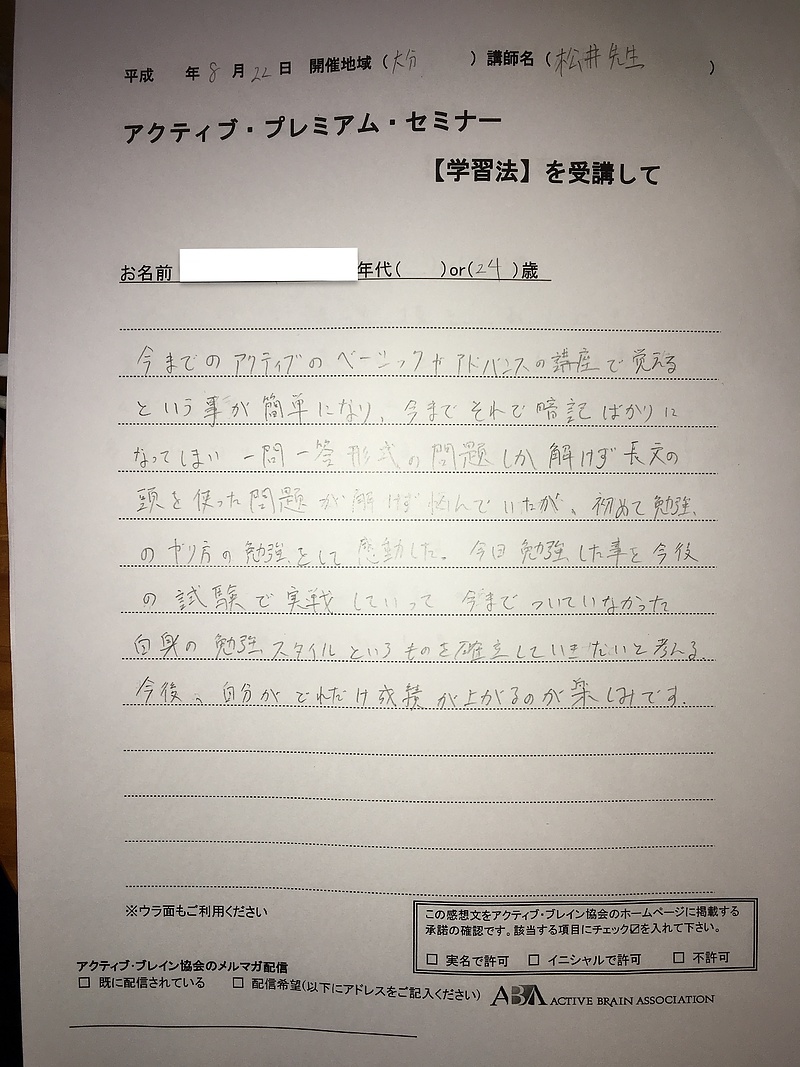 平成 年 8 月 22 日 開催地域（大分 ）講師名（松井先生 ）
アクティブ・プレミアム・セミナー
【学習法】を受講して
お名前 年代( )or(24)歳
今までのアクティブのベーシックやアドバンスの講座で覚える
という事が簡単になり、今までそれで暗記ばかりに
なってしまい一問一答形式の問題しか解けず長文の
頭を使った問題が解けず悩んでいたが、初めて勉強
のやり方の勉強をして感動した。今日勉強した事を今後
の試験で実戦していって今までついていなかった
自身の勉強スタイルというものを確立していきたいと考える。
今後、自分がどれだけ成績が上がるのが楽しみです。
※ウラ面もご利用ください
この感想文をアクティブ・ブレイン協会のホームページに掲載する
承諾の確認です。該当する項目にチェック☑を入れて下さい。
□ 実名で許可 □ イニシャルで許可 □ 不許可
アクティブ・ブレイン協会のメルマガ配信
□ 既に配信されている □ 配信希望(以下にアドレスをご記入ください)
ABA ACTIVE BRAIN ASSOCIATION